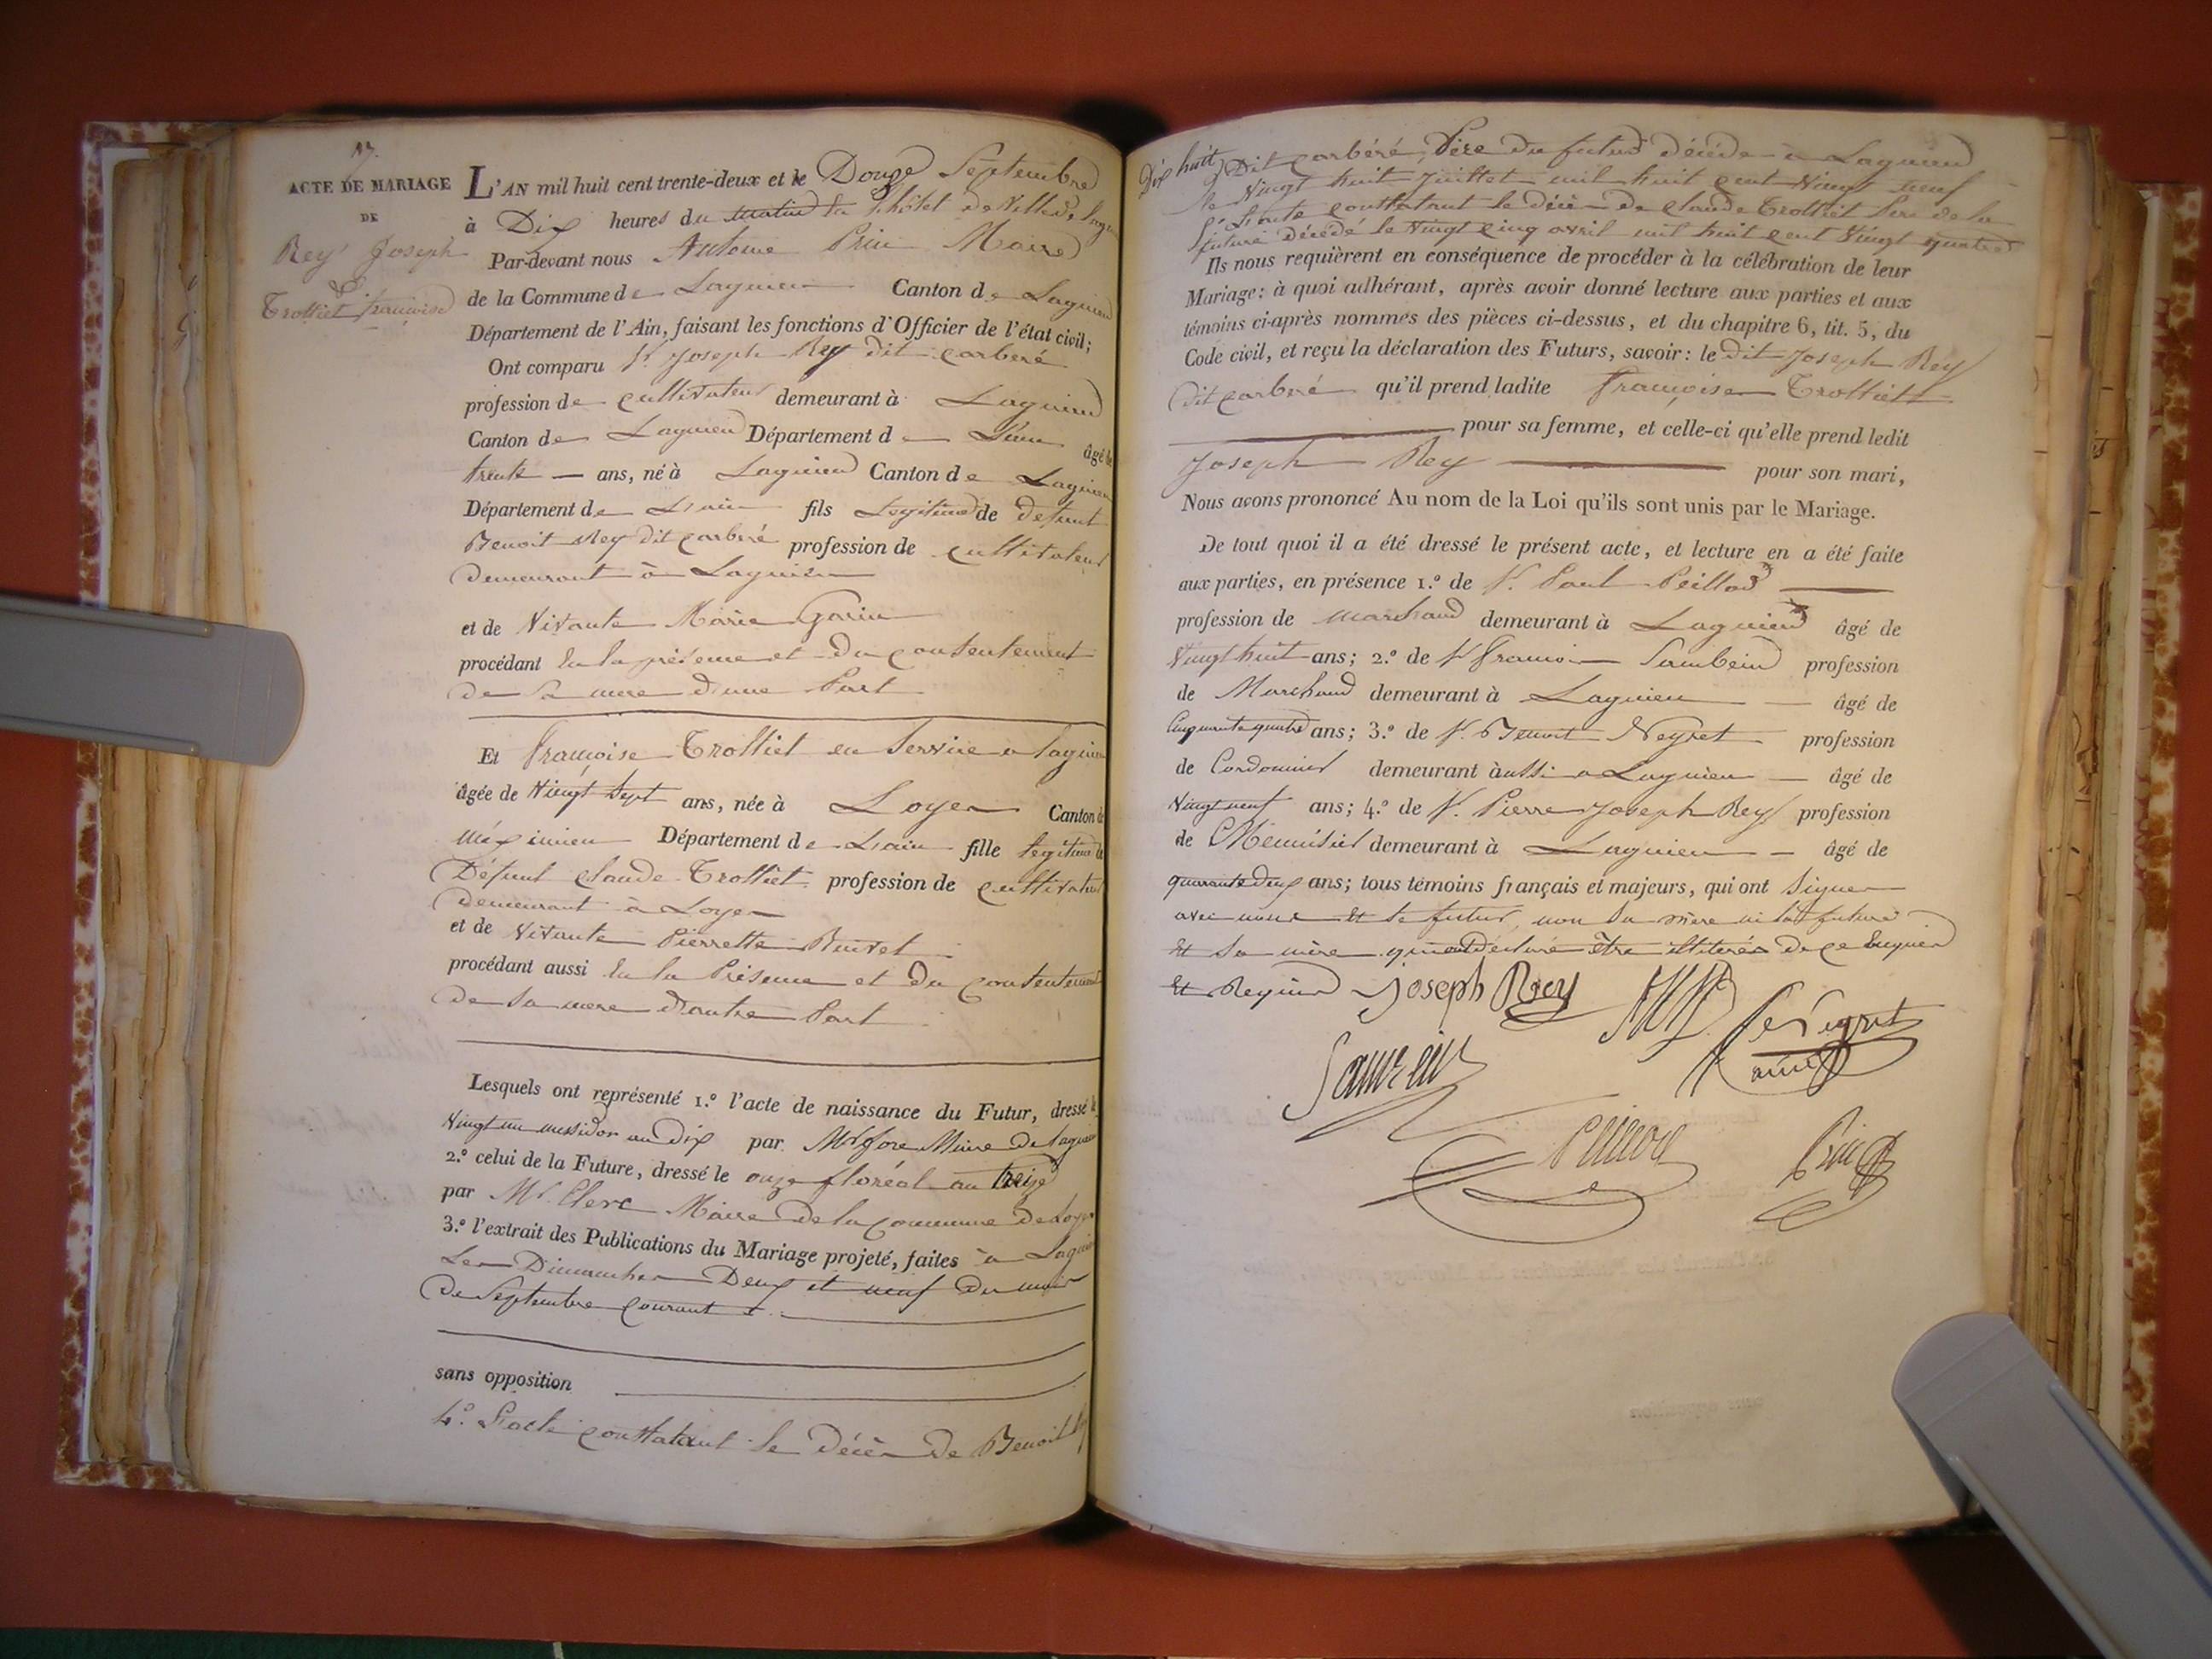 17.
ACTE DE MARIAGE
DE
Rey Joseph
&
Trolliet françoise
L'AN mil huit cent trente-deux et le Douze Septembre
à Dix heures du matin en l'hôtel de Ville de
Par-devant nous Antoine Prin Maire
de la Commune de Lagnieu Canton de Lagnieu
Département de l'Ain, faisant les fonctions d'Officier de l'état civil;
Ont comparu Sr. Joseph Rey dit carbéré
profession de cultivateur demeurant à Lagnieu
Canton de Lagnieu Département de L'ain âgé de
trente ans, né à Lagnieu Canton de Lagnieu
Département de L'ain fils légitime de défunt
Benoit Rey dit carbéré profession de cultivateur
demeurant à Lagnieu
et de Vivante Marie Garin
procédant en la présence et du consentement
de sa mere d'une Part
Et françoise Trolliet en Service a lagnieu
âgée de Vingt Sept ans, née à Loyes Canton de
méximieu Département de L'ain fille légitime de
Défunt claude Trolliet profession de cultivateur
demeurant à Loyes
et de Vivante Pierrette
procédant aussi En la Présence et du consentement
de sa mere d'autre Part
Lesquels ont représenté 1.º l'acte de naissance du Futur, dressé le
Vingt un messidor an Dix par Maire de lagnieu
2.º celui de la Future, dressé le onze floréal an treize
par Mr. Clerc Maire de la commune de Loyes
3.º l'extrait des Publications du Mariage projeté, faites à Lagnieu
Les Dimanches Deux et neuf du mois
de Septembre courant
sans opposition
4.º L'acte constatant le décès de Benoit Rey
Dix huit
Dit carbéré, Père du futur décédé à Lagnieu
le Vingt huit Juillet mil huit cent Vingt neuf
5.º L'acte constatant le décès de claude Trolliet Père de la
future décédé le Vingt cinq avril mil huit cent Vingt quatre
Ils nous requièrent en conséquence de procéder à la célébration de leur
Mariage: à quoi adhérant, après avoir donné lecture aux parties et aux
témoins ci-après nommés des pièces ci-dessus, et du chapitre 6, tit. 5, du
Code civil, et reçu la déclaration des Futurs, savoir: le dit Joseph Rey
dit carbéré qu'il prend ladite françoise Trolliet
pour sa femme, et celle-ci qu'elle prend ledit
Joseph Rey pour son mari,
Nous avons prononcé Au nom de la Loi qu'ils sont unis par le Mariage.
De tout quoi il a été dressé le présent acte, et lecture en a été faite
aux parties, en présence 1.º de Sr. Paul Peillod
profession de marchand demeurant à Lagnieu âgé de
Vingt huit ans; 2.º de Sr françois profession
de Marchand demeurant à Lagnieu âgé de
Cinquante quatre ans; 3.º de Sr. Benoit Neyret profession
de Cordonnier demeurant aussi a Lagnieu âgé de
Vingt neuf ans; 4.º de Sr. Pierre Joseph Rey profession
de Menuisier demeurant à Lagnieu âgé de
quarante deux ans; tous témoins français et majeurs, qui ont Signer
avec nous et le futur, non sa mère ni la future
et sa mère qui ont déclaré être illiterés de ce Enquis
et Requis Joseph Rey